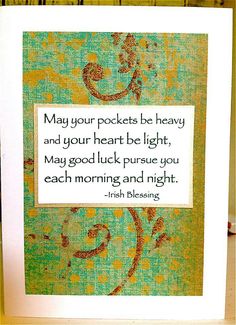 May your pockets be heavy
and your heart be light,
May good luck pursue you
each morning and night.
-Irish Blessing